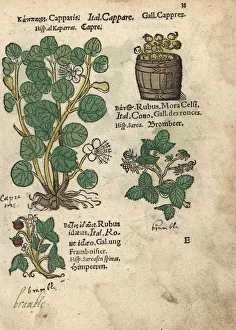 38
Κάππαρις. Capparis. Ital. Cappare. Gall. Cappres.
Hisp. al Kaparras. Capre.
Rubus, Mora Celsi,
Ital. Cono. Gall. des ronces.
Hisp. Sarca. Brombeer.
Capre
tree.
bramble
E
Rubus
idæus. Ital. Ro-
ue idæo. Gal. ung
Framboisier.
Hisp. Sarcassen spinas.
Himpeeren.
bramble
bramble